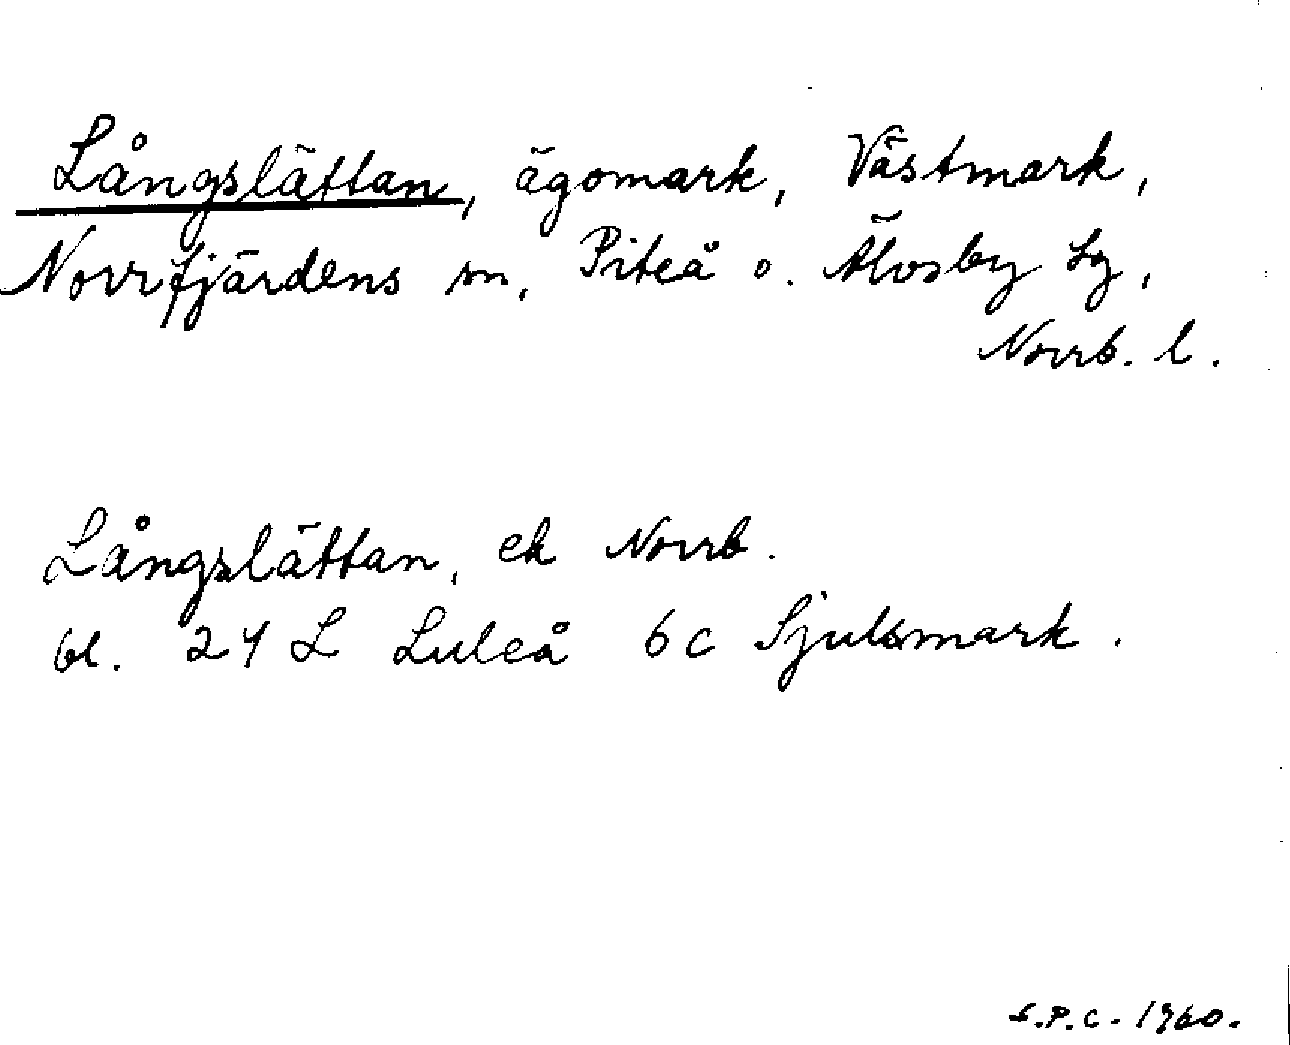 Långslättan, ägomark, Västmark,
Norrfjärdens sn, Piteå o. Älvsby tg,
Norrb. l.
Långslättan, ek Norrb.
bl. 24 L Luleå 6c Sjulsmark.
S.P.C. 1960.